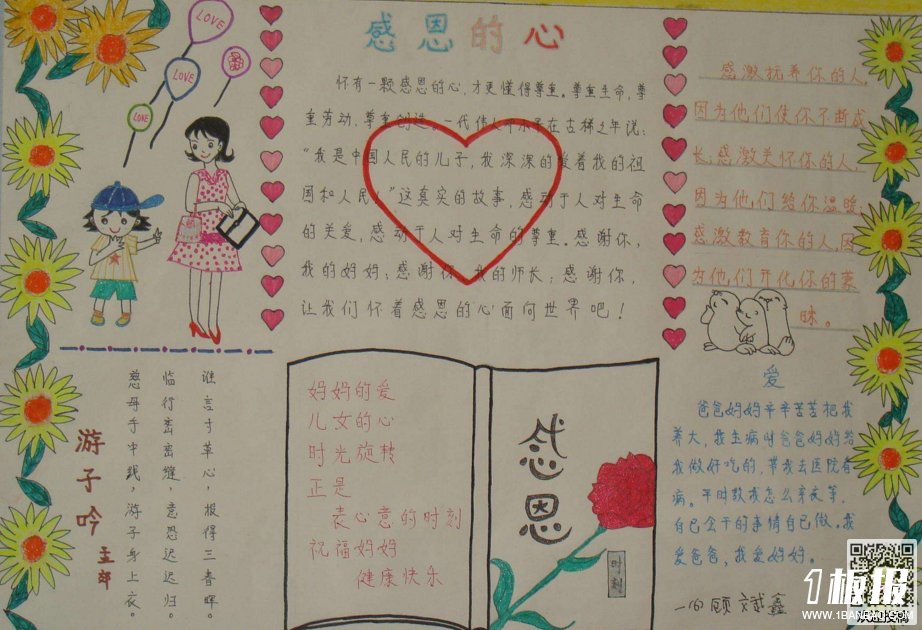 感恩的心
LOVE
LOVE
LOVE
怀有一颗感恩的心,才更懂得尊重。尊重生命,尊
重劳动,尊重创造。一代伟人邓小平在古稀之年说:
“我是中国人民的儿子,我深深的爱着我的祖
国和人民。”这真实的故事,感动于人对生命
的关爱,感动于人对生命的尊重。感谢你,
我的妈妈;感谢你,我的师长;感谢你,
让我们怀着感恩的心面向世界吧!
感激抚养你的人,
因为他们使你不断成
长;感激关怀你的人,
因为他们给你温暖;
感激教育你的人,因
为他们开化你的蒙
昧。
游子吟
孟郊
慈母手中线,游子身上衣。
临行密密缝,意恐迟迟归。
谁言寸草心,报得三春晖。
妈妈的爱
儿女的心
时光旋转
正是
表心意的时刻
祝福妈妈
健康快乐
感恩
时刻
爱
爸爸妈妈辛辛苦苦把我
养大,我生病时爸爸妈妈给
我做好吃的,带我去医院看
病。平时教我怎么穿衣等,
自己会干的事情自己做。我
爱爸爸,我爱妈妈。
顾斌鑫
1板报
WWW.1BANBAO.COM